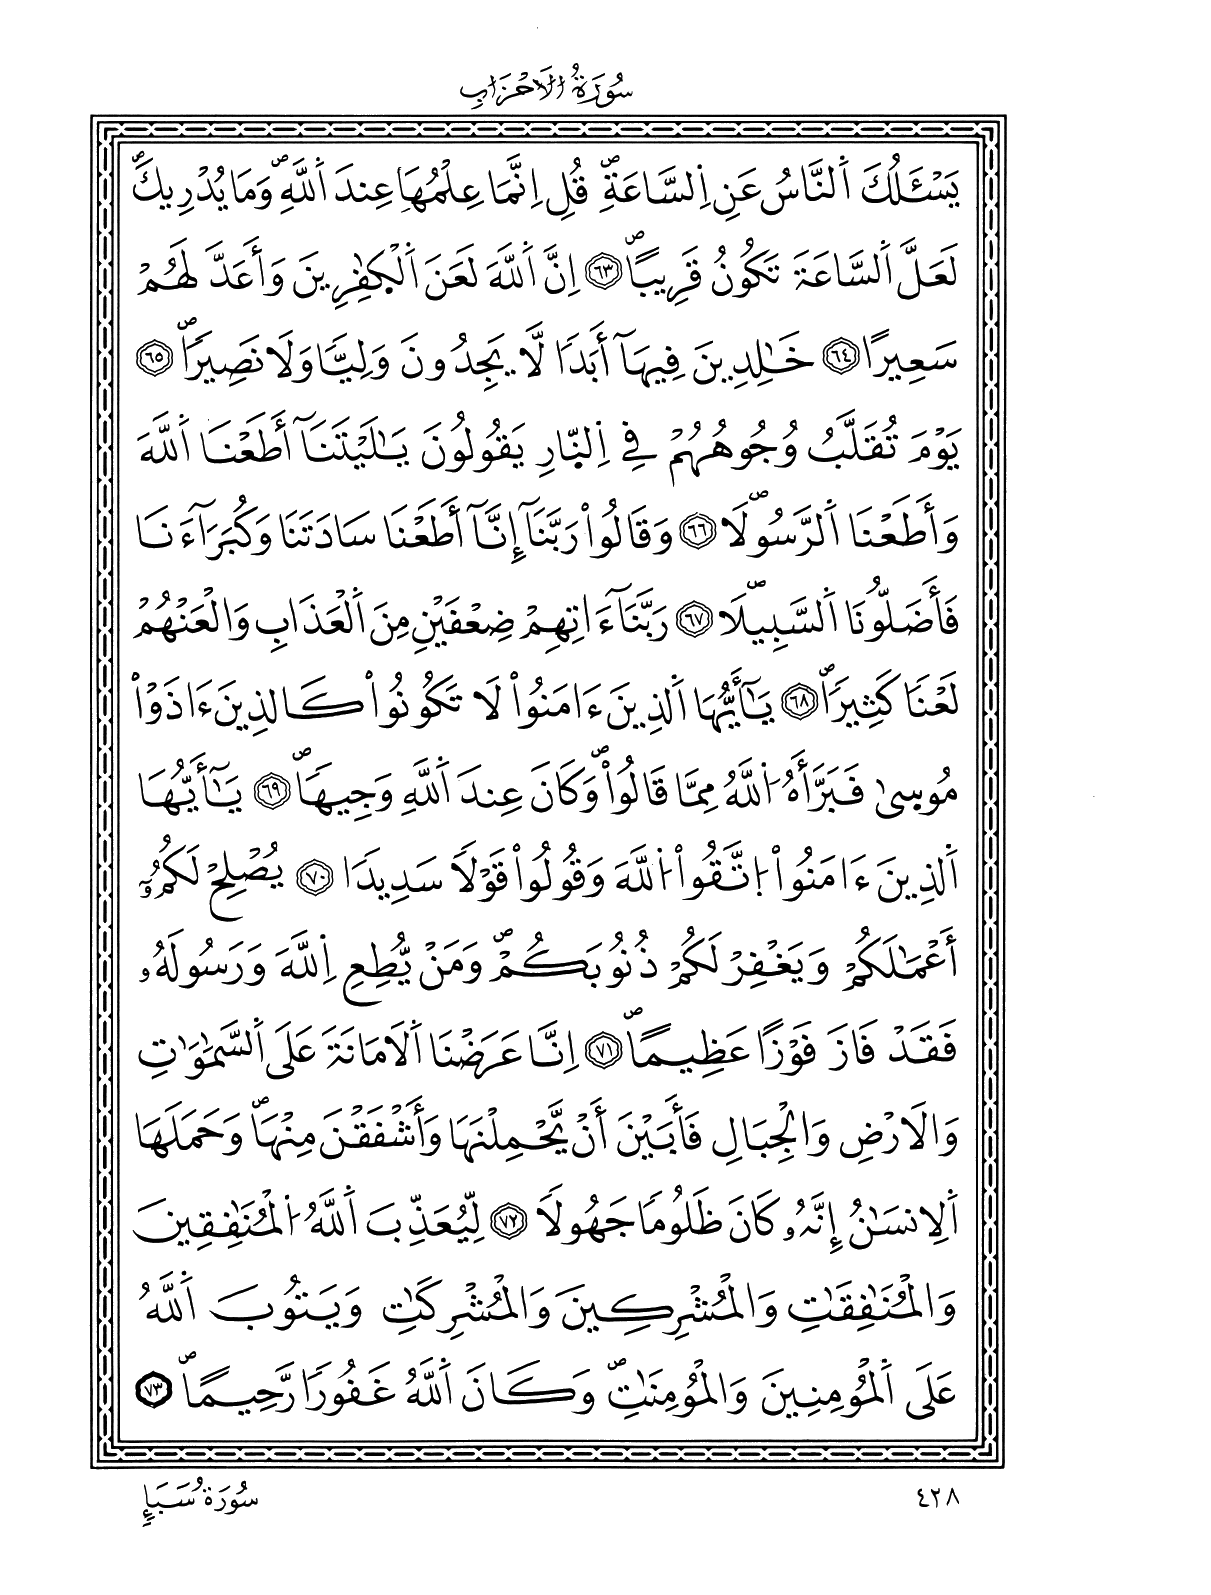 سُورَةُ الاَحْزَابِ
يَسْـَٔلُكَ اَ۬لنَّاسُ عَنِ اِ۬لسَّاعَةِۖ قُلِ اِنَّمَا عِلْمُهَا عِندَ اَ۬للَّهِۖ وَمَا يُدْرِيكَۖ
لَعَلَّ اَ۬لسَّاعَةَ تَكُونُ قَرِيباًۖ ٦٣ اِنَّ اَ۬للَّهَ لَعَنَ اَ۬لْكٰفِرِينَ وَأَعَدَّ لَهُمْ
سَعِيرًا ٦٤ خَٰلِدِينَ فِيهَآ أَبَدًا لَّا يَجِدُونَ وَلِيًّا وَلَا نَصِيرًاۖ ٦٥
يَوْمَ تُقَلَّبُ وُجُوهُهُمْ فِي اِ۬لنّ۪ارِ يَقُولُونَ يَٰلَيْتَنَآ أَطَعْنَا اَ۬للَّهَ
وَأَطَعْنَا اَ۬لرَّسُولَاۖ ٦٦ وَقَالُواْ رَبَّنَآ إِنَّآ أَطَعْنَا سَادَتَنَا وَكُبَرَآءَنَا
فَأَضَلُّونَا اَ۬لسَّبِيلَاۖ ٦٧ رَبَّنَآ ءَاتِهِمْ ضِعْفَيْنِ مِنَ اَ۬لْعَذَابِ وَالْعَنْهُمْ
لَعْنَا كَثِيرًاۖ ٦٨ يَٰٓأَيُّهَا اَ۬لذِينَ ءَامَنُواْ لَا تَكُونُواْ كَالذِينَ ءَاذَوْاْ
مُوس۪ىٰ فَبَرَّأَهُ اُ۬للَّهُ مِمَّا قَالُواْۖ وَكَانَ عِندَ اَ۬للَّهِ وَجِيهًاۖ ٦٩ يَٰٓأَيُّهَا
اَ۬لذِينَ ءَامَنُواْ اُ۪تَّقُواْ اُ۬للَّهَ وَقُولُواْ قَوْلًا سَدِيدًا ٧٠ يُصْلِحْ لَكُمُۥٓ
أَعْمَٰلَكُمْ وَيَغْفِرْ لَكُمْ ذُنُوبَكُمْۖ وَمَنْ يُّطِعِ اِ۬للَّهَ وَرَسُولَهُۥ
فَقَدْ فَازَ فَوْزًا عَظِيمًاۖ ٧١ اِنَّا عَرَضْنَا اَ۬لَامَانَةَ عَلَى اَ۬لسَّمَٰوَٰتِ
وَالَارْضِ وَالْجِبَالِ فَأَبَيْنَ أَنْ يَّحْمِلْنَهَا وَأَشْفَقْنَ مِنْهَاۖ وَحَمَلَهَا
اَ۬لِانسَٰنُ إِنَّهُۥ كَانَ ظَلُومًا جَهُولًا ٧٢ لِّيُعَذِّبَ اَ۬للَّهُ اُ۬لْمُنَٰفِقِينَ
وَالْمُنَٰفِقَٰتِ وَالْمُشْرِكِينَ وَالْمُشْرِكَٰتِ وَيَتُوبَ اَ۬للَّهُ
عَلَى اَ۬لْمُومِنِينَ وَالْمُومِنَٰتِۖ وَكَانَ اَ۬للَّهُ غَفُورًا رَّحِيمًاۖ ٧٣
٤٢٨
سُورَةُ سَبَإٍ